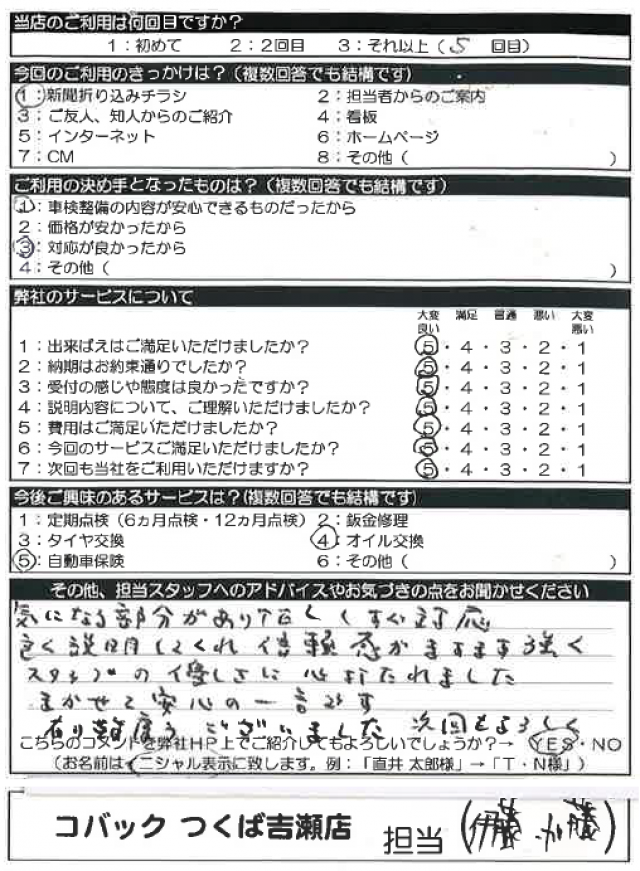 当店のご利用は何回目ですか？
1：初めて 2：2回目 3：それ以上（5 回目）
今回のご利用のきっかけは？（複数回答でも結構です）
1：新聞折り込みチラシ 2：担当者からのご案内
3：ご友人、知人からのご紹介 4：看板
5：インターネット 6：ホームページ
7：CM 8：その他（ ）
ご利用の決め手となったものは？（複数回答でも結構です）
1：車検整備の内容が安心できるものだったから
2：価格が安かったから
3：対応が良かったから
4：その他（ ）
弊社のサービスについて
大変良い 満足 普通 悪い 大変悪い
1：出来ばえはご満足いただけましたか？ 5・4・3・2・1
2：納期はお約束通りでしたか？ 5・4・3・2・1
3：受付の感じや態度は良かったですか？ 5・4・3・2・1
4：説明内容について、ご理解いただけましたか？ 5・4・3・2・1
5：費用はご満足いただけましたか？ 5・4・3・2・1
6：今回のサービスご満足いただけましたか？ 5・4・3・2・1
7：次回も当社をご利用いただけますか？ 5・4・3・2・1
今後ご興味のあるサービスは？（複数回答でも結構です）
1：定期点検（6ヵ月点検・12ヵ月点検） 2：鈑金修理
3：タイヤ交換 4：オイル交換
5：自動車保険 6：その他（ ）
その他、担当スタッフへのアドバイスやお気づきの点をお聞かせください
気になる部分があり すぐ対応
良く説明してくれ 信頼感がますます強く
スタッフの優しさに心打たれました
まかせて安心の一言です
有り難度うございました 次回もよろしく
こちらのコメントを弊社HP上でご紹介してもよろしいでしょうか？→ YES・NO
（お名前はイニシャル表示に致します。例：「直井 太郎様」→「T・N様」）
コバック つくば吉瀬店 担当（伊藤 加藤）